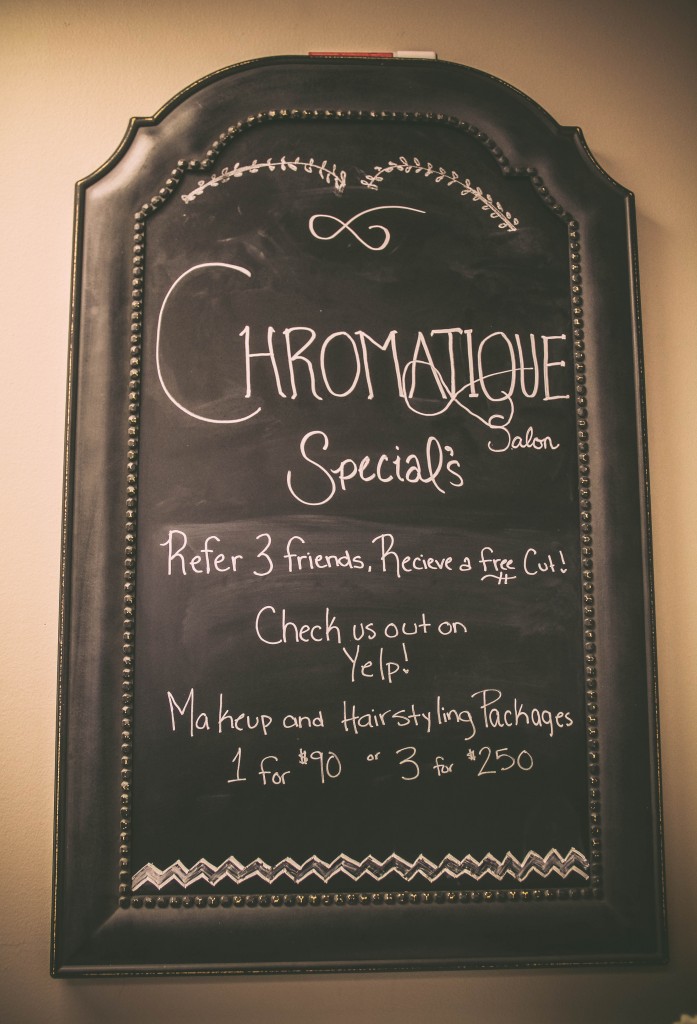 CHROMATIQUE
Salon
Special's
Refer 3 friends, Recieve a free Cut!
Check us out on
Yelp!
Makeup and Hairstyling Packages
1 for $90 or 3 for $250